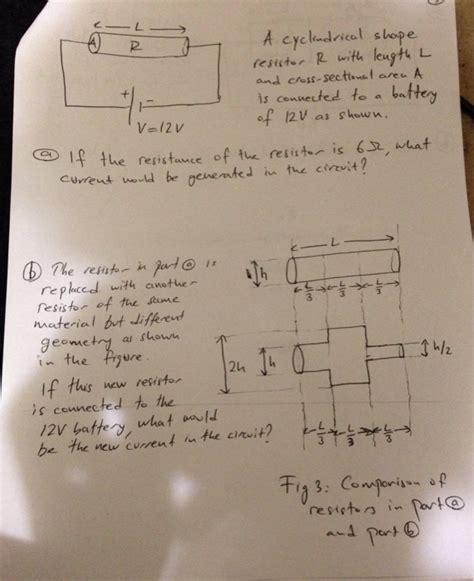 ← L →
A R
+ -
V=12V
A cyclindrical shape
resistor R with length L
and cross-sectional area A
is connected to a battery
of 12V as shown.
ⓐ If the resistance of the resistor is 6Ω, what
current would be generated in the circuit?
ⓑ The resistor in part ⓐ is
replaced with another
resistor of the same
material but different
geometry as shown
in the figure.
If this new resistor
is connected to the
12V battery, what would
be the new current in the circuit?
← L →
h
L/3 L/3 L/3
2h h h/2
L/3 L/3 L/3
Fig 3: Comparison of
resistors in part ⓐ
and part ⓑ